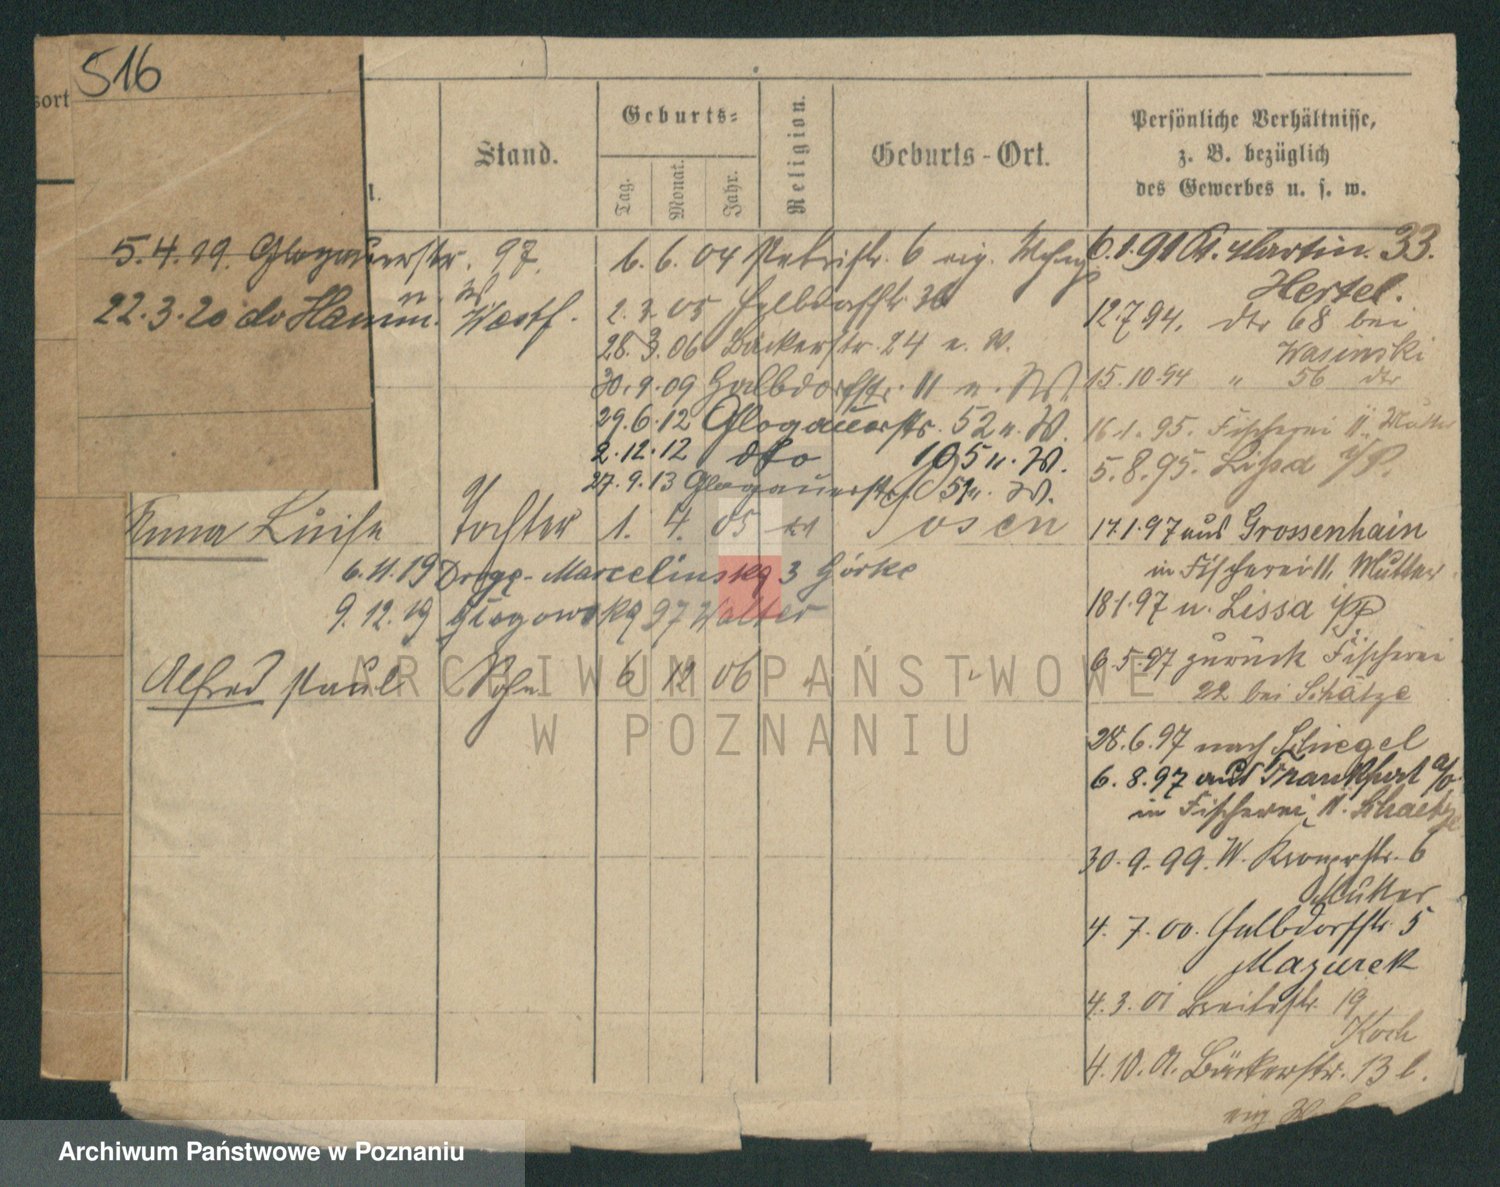 516
sort
Stand.
Geburts-
Tag.
Monat.
Jahr.
Religion.
Geburts-Ort.
Persönliche Verhältnisse,
z. B. bezüglich
des Gewerbes u. s. w.
5.4.19. Glogauerstr. 97.
22.3.20 do Hamm. Westf.
6.6.04 Petristr. 6 eig.
2.3.05 36
28.3.06 Bäckerstr. 24 e. W.
30.9.09 Halbdorfstr. 11 u. W.
29.6.12 Glogauerstr. 52 u. W.
2.12.12 dto 105 u. W.
27.9.13 Glogauerstr. 51 u. W.
Anna Luise Tochter 1. 4. 05 ev Posen
6.11.19 Droga-Marcelinska 3 Górke
9.12.19 Glogowska 97 Walter
Alfred Paul Sohn 6 12 06 " "
6.1.91 St. Martin. 33.
Hertel.
12.7.94. dto 68 bei
Wasinski
15.10.94 " 56 dto
16.1.95. Fischerei 11. Mutter
5.8.95. Lissa i/P.
17.1.97 aus Grossenhain
in Fischerei 11. Mutter
18.1.97 n. Lissa i/P
6.5.97 zurück Fischerei
22 bei Schätze
28.6.97 nach Schwegel
6.8.97 aus Frankfurt a/O
in Fischerei 11.
30.9.99. W. Kronerstr. 6
Mutter
4.7.00. Halbdorfstr. 5
Mazurek
4.3.01 Breitestr. 19
Koch
4.10.01. Bäckerstr. 13 b.
eig
ARCHIWUM PAŃSTWOWE
W POZNANIU
Archiwum Państwowe w Poznaniu